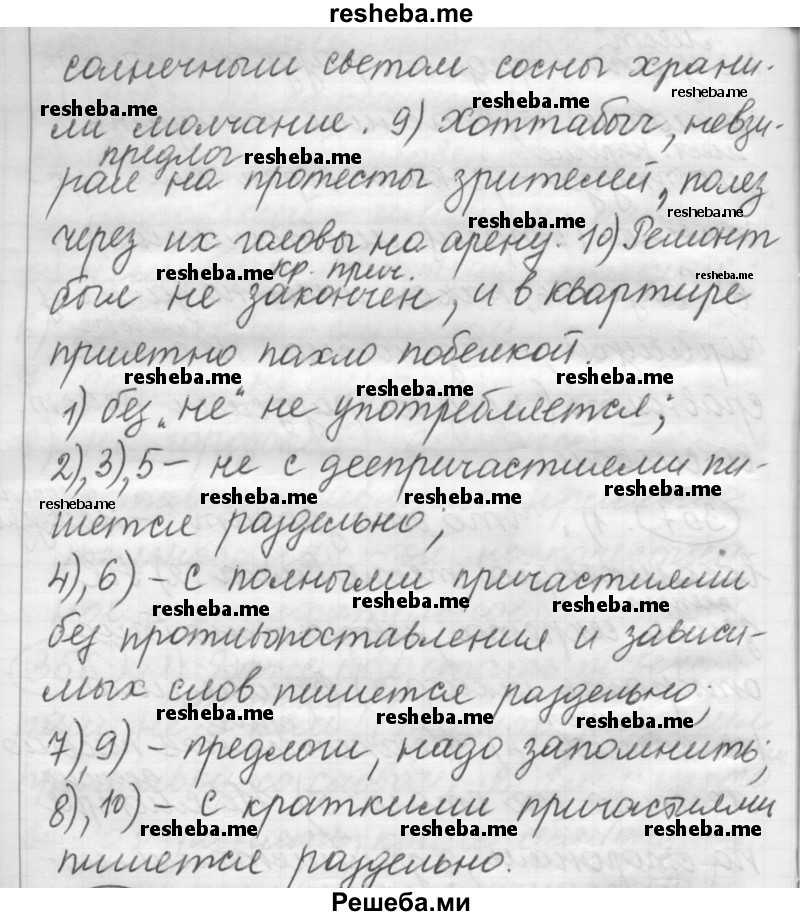 resheba.me
солнечным светом сосны храни-
resheba.me resheba.me resheba.me
ли молчание. 9) Хоттабыч, невзи-
предлог resheba.me
рая на протесты зрителей, полез
resheba.me resheba.me
через их головы на арену. 10) Ремонт
кр. прич.
resheba.me resheba.me
был не закончен, и в квартире
приятно пахло побелкой.
resheba.me resheba.me resheba.me
1) без „не“ не употребляется;
2), 3), 5 – не с деепричастиями пи-
resheba.me resheba.me resheba.me resheba.me
шется раздельно;
4), 6) – с полными причастиями
resheba.me resheba.me resheba.me
без противопоставления и зависи-
мых слов пишется раздельно;
resheba.me resheba.me resheba.me
7), 9) – предлоги, надо запомнить;
8), 10) – с краткими причастиями
resheba.me resheba.me resheba.me
пишется раздельно.
Решеба.ми